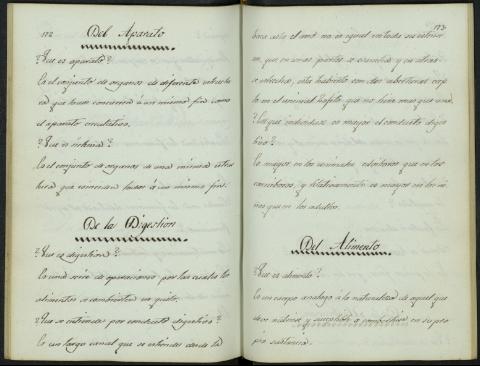 172
Del Aparato
¿Que es aparato?
Es el conjunto de organos de diferente estructu
ra que hacen concurrir á un mismo fin como
el aparato circulatorio.
¿Que es sistema?
Es el conjunto de organos de una misma estruc
tura que concurren todos á un mismo fin.
De la Digestion
¿Que es digestion?
Es una serie de operaciones por las cuales los
alimentos se combierten en quilo.
¿Que se entiende por conducto digestivo?
Es un largo canal que se estiende desde la
173
boca asta el ano no es igual en toda su estension
en que en unas partes se ensancha y en otras
se estrecha, esta habierto con dos aberturas
en el animal que no tiene mas que una.
¿En que individuos es mayor el conducto diges
tivo?
Es mayor en los animales erbivoros que en los
carnivoros, y es mayor en los ni
ños que en los adultos.
Del Alimento
¿Que es alimento?
Es un cuerpo analogo á la naturaleza de aquel que
nutrir y susceptible á combertirse en su pro
pia sustancia.